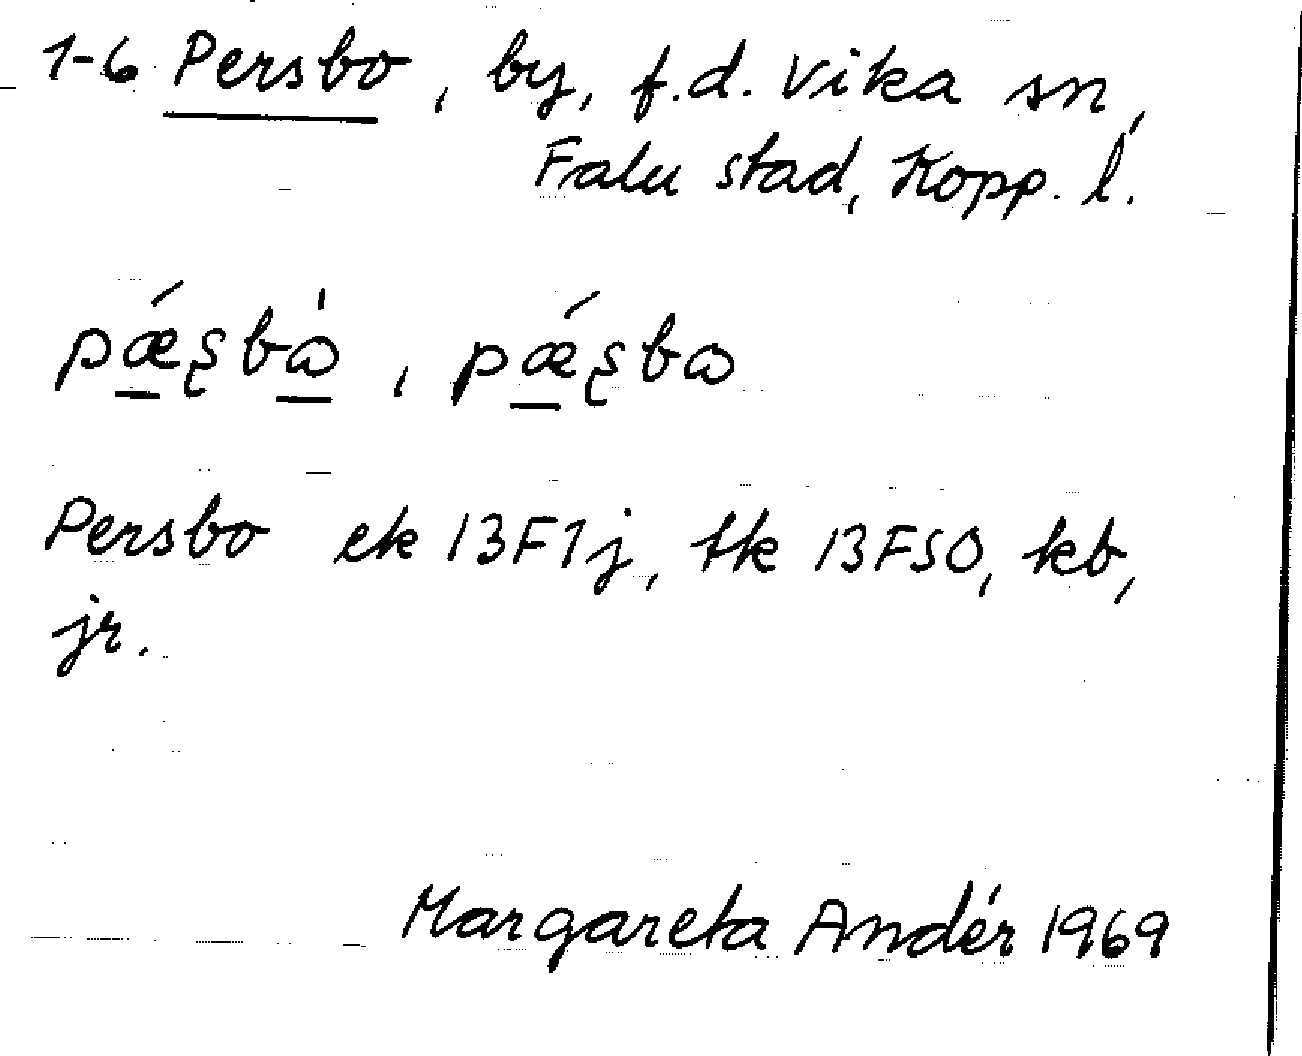 1-6 Persbo, by, f.d. Vika sn,
Falu stad, Kopp. l.
pǽ̱ʂbɷ̱̀, pǽ̱ʂbɷ
Persbo ek 13F1j, tk 13F50, kb,
jr.
Margareta Andér 1969